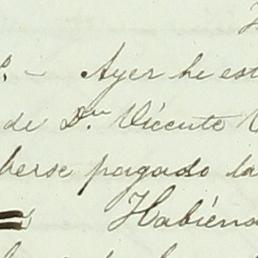 Ayer he est
de Dn Vicente V
berse pagado la
Habiend